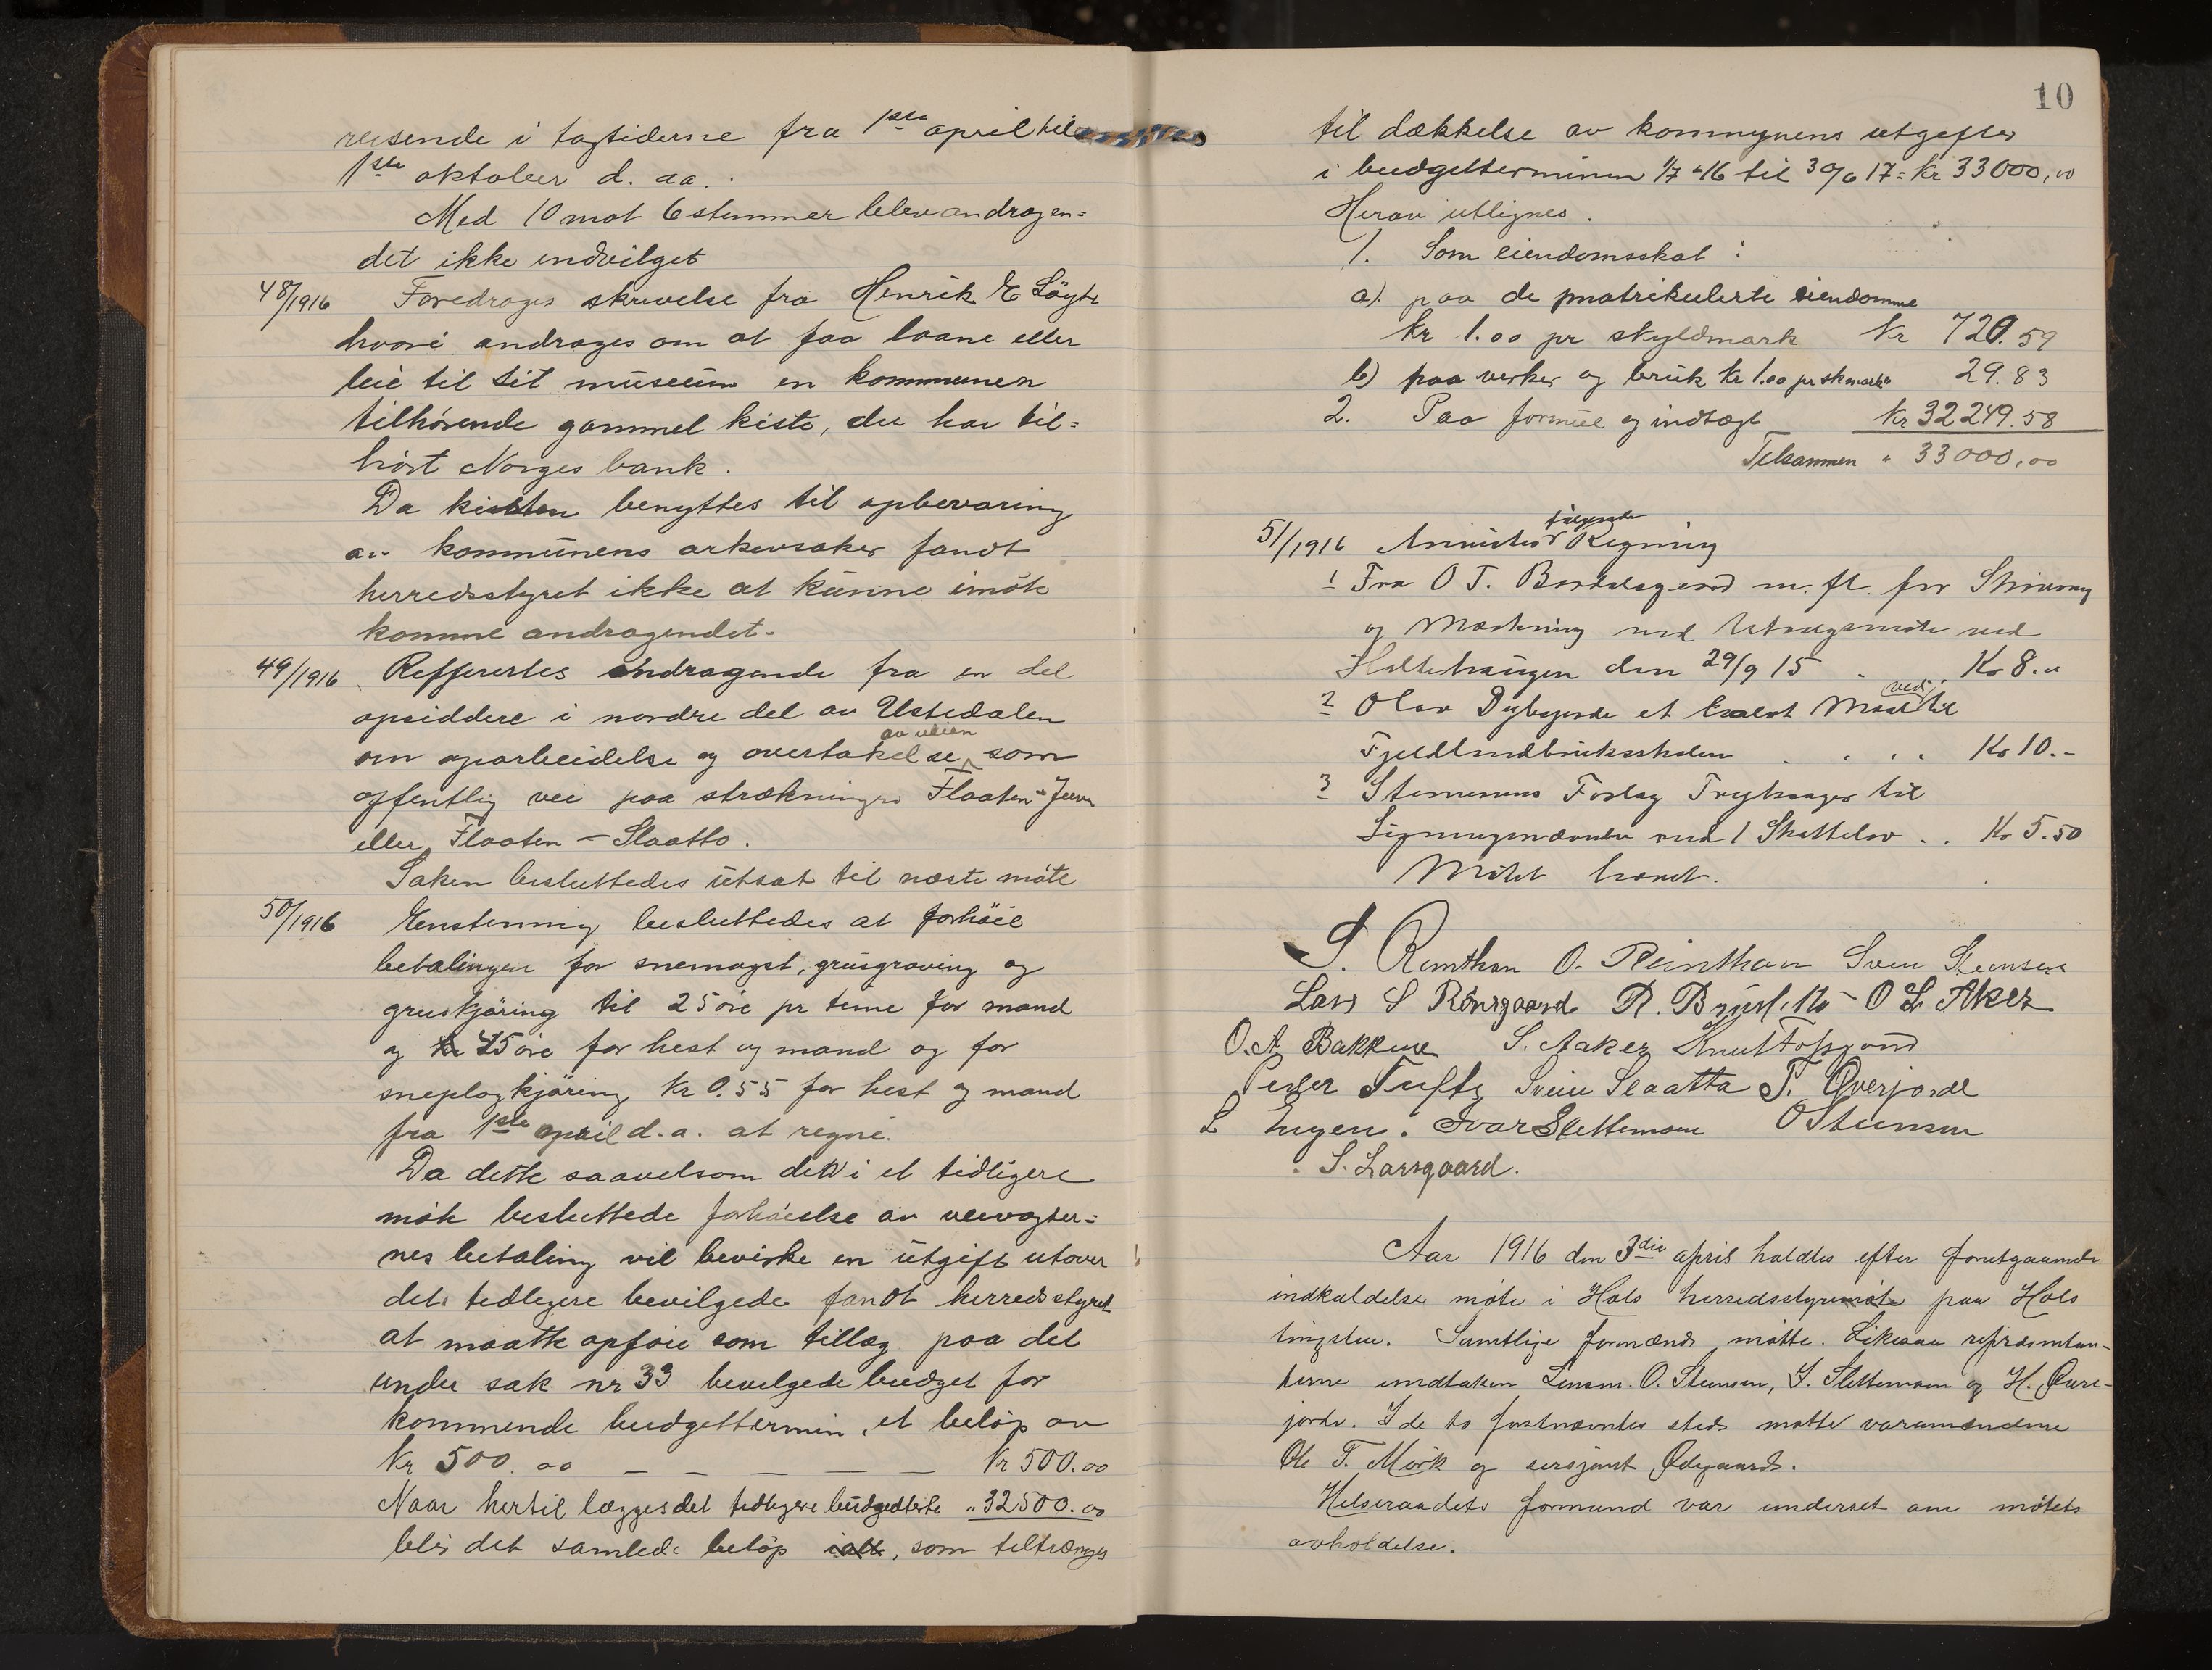 reisende i togtiderne fra 1ste april til
1ste oktober d. aa.
Med 10 mot 6 stemmer blev andragen=
det ikke indvilget
48/1916 Foredroges skrivelse fra Henrik E
hvori andrages om at faa laane eller
leie til sit museum en kommunen
tilhørende gammel kiste, der har til=
hørt Norges bank.
Da kisten benyttes til opbevaring
av kommunens arkivsaker fandt
herredsstyret ikke at kunne imøte
komme andragendet.
49/1916 Refferertes andragende fra en del
opsiddere i nordre del av Ustedalen
om oparbeidelse og overtakelse av veien som
offentlig vei paa strækningen Flaaten -
eller Flaaten - Slaatto.
Saken besluttedes utsat til næste møte
50/1916 Enstemmig besluttedes at forhöie
betalingen for snemogst, grusgraving og
gruskjöring til 25 øre pr time for mand
og 45 øre for hest og mand og for
sneplogkjöring kr 0.55 for hest og mand
fra 1ste april d.a. at regne.
Da dette saavelsom den i et tidligere
møte besluttede forhöielse av veivogter=
nes betaling vil bevirke en utgift utover
det tidligere bevilgede fandt herredsstyret
at maatte opføie som tillæg paa det
under sak nr 33 bevilgede budget for
kommende budgettermin, et beløp av
Kr 500.00 — — — — — Kr 500.00
Naar hertil lægges det tidligere budgetterte " 32500.00
blir det samlede beløp ialt, som tiltrænges
10
til dækkelse av kommunens utgifter
i budgetterminen 1/7 16 til 30/6 17 = Kr 33000,00
Herav utlignes.
1. Som eiendomsskat :
a) paa de matrikulerte eiendomme
kr 1.00 pr skyldmark Kr 720.59
b) paa verker og bruk kr 1.00 pr skmark 29.83
2. Paa formue og indtægt Kr 32249.58
Tilsammen " 33000,00
51/1916 Anvistes følgende Regning
1 Fra O T. m. fl. for
og ved ved
den 29/9 15 . . Kr 8.
2 Olav et ved til
. . . . Kr 10.-
3 Stenersens Forlag Tryksager til
med 1 Skattelov . . Kr 5.50
Møtet hævet.
S. O. Reinthon Svein Steinsen
Lars S R. O L Aker
O. A. Bakkene S. Aaker Knut
Peder Tufte Svein Slaatta T. Øverjorde
L Engen. Ivar Slettemoen O Steinsen
S. Larsgaard.
Aar 1916 den 3die april holdtes efter forutgaaende
indkaldelse møte i Hols herredsstyremøte paa Hols
tingstue. Samtlige formænd møtte. Likesaa repræsentan-
terne undtaken Lensm. O. Steinsen, I. Slettemoen og H. Øvre-
jorde. I de to førstnævntes sted møtte varamændene
Ole T. Mörk og sersjant Ødegaard.
Helseraadets formand var underret om møtets
avholdelse.